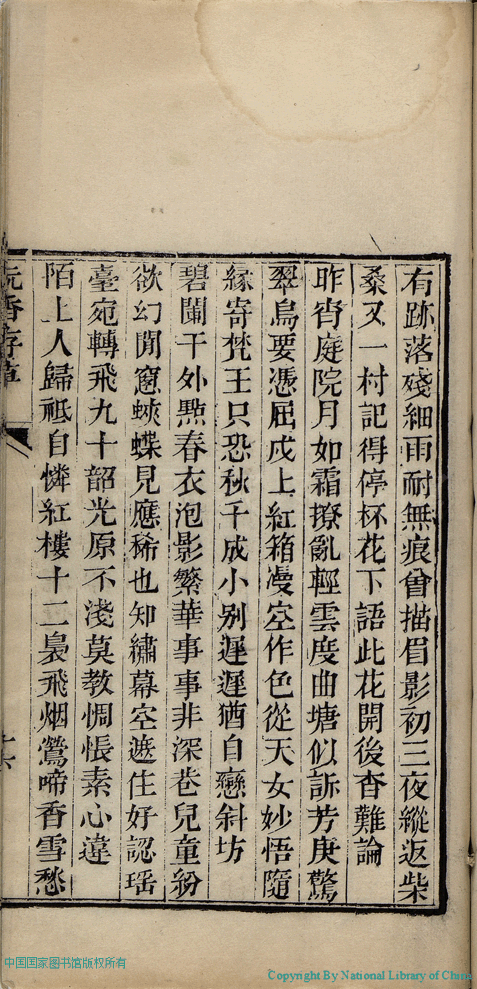 有跡落殘細雨耐無痕曾描眉影初三夜縱返柴
桑又一村記得停杯花下語此花開後杳難論
昨宵庭院月如霜撩亂輕雲度曲塘似訴芳庚驚
翠鳥要憑屈戍上紅箱漫空作色從天女妙悟隨
緣寄梵王只恐秋千成小别遲遲猶自戀斜坊
碧闌干外㸃春衣泡影繁華事事非深巷兒童紛
欲幻閒窻蛺蝶見應稀也知繡幕空遮住好認瑶
臺宛轉飛九十韶光原不淺莫教惆悵素心違
陌上人歸祗自憐紅樓十二裊飛烟鶯啼香雪愁
香存草
十六
中国国家图书馆版权所有
Copyright By National Library of China